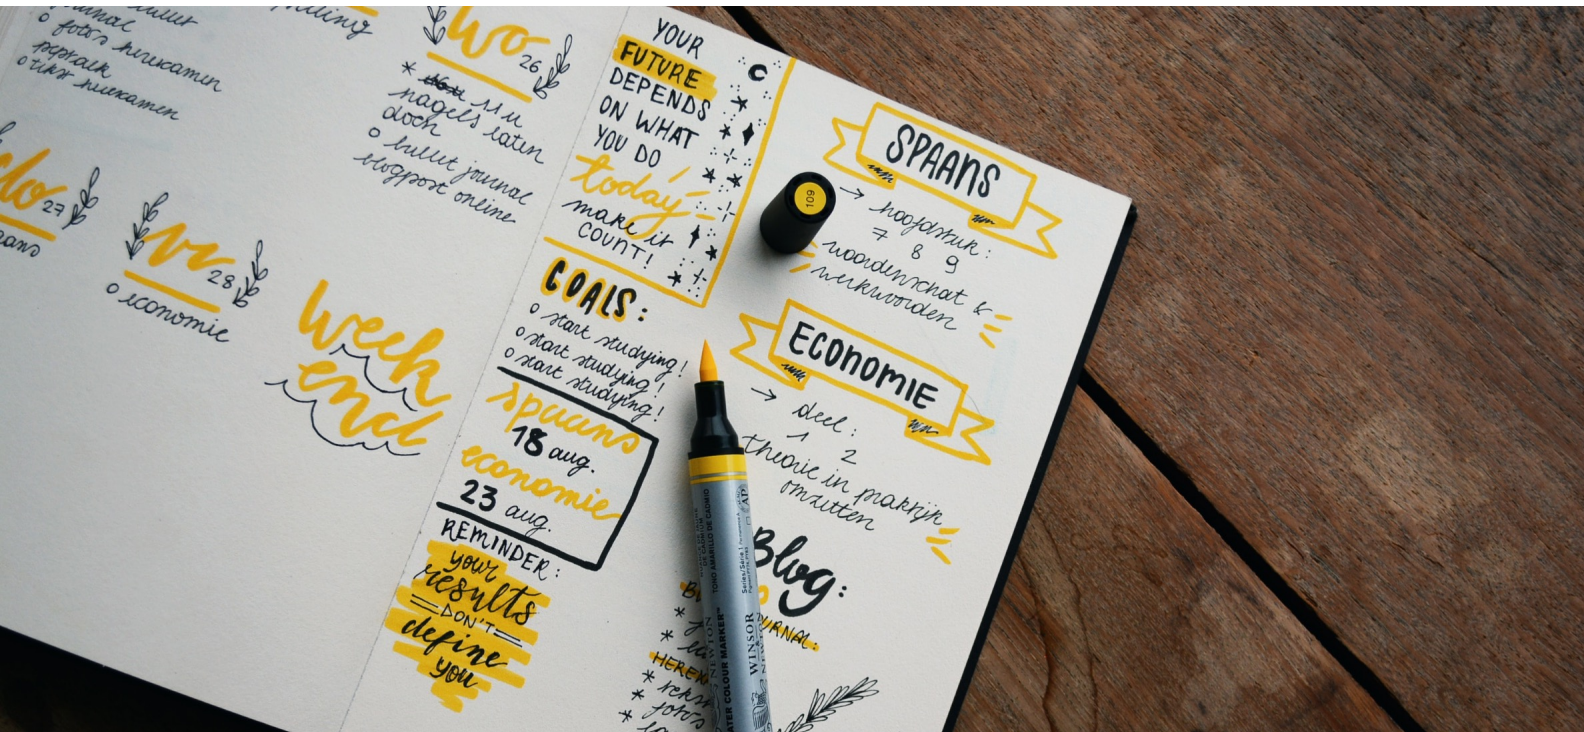 fotos herexamen
peptalk
herexamen
wo
26
11 u
nagels laten
doen
bullet journal
blogpost online
do
27
vr
28
economie
week
end
YOUR
FUTURE
DEPENDS
ON WHAT
YOU DO
today
make it
COUNT!
GOALS:
start studying!
start studying!
start studying!
spaans
18 aug.
economie
23 aug.
REMINDER:
your
results
DON'T
define
you
SPAANS
→ hoofdstuk:
7 8 9
woordenschat &
werkwoorden
ECONOMIE
→ deel:
1 2
theorie in praktijk
omzetten
Blog:
JOURNAL:
tekst
foto's
109
TONO AMARILLO DE CADMIO
Series/Série 1
AP
WINSOR
NEWTON
WATER COLOUR MARKER™